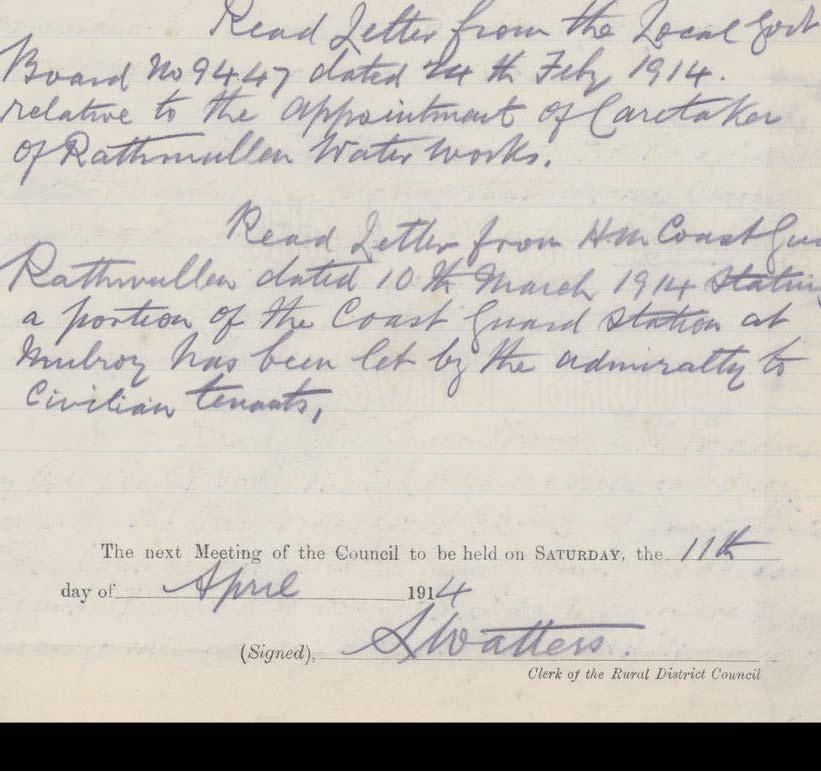 Read Letter from the Local Govt
Board No 9447 dated 24th Feby 1914.
relative to the appointment of Caretaker
of Rathmullen Water works.
Read Letter from H M Coast Gua
Rathmullen dated 10th March 1914 Statin
a portion of the Coast Guard Station at
Mulroy has been let by the admiralty to
Civilian tenants,
The next Meeting of the Council to be held on SATURDAY, the 11th
day of April 1914
(Signed), S Watters.
Clerk of the Rural District Council